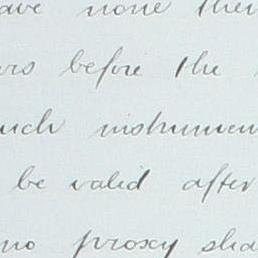 ave none then
ers before the
uch instrumen
be valid after
no proxy sha